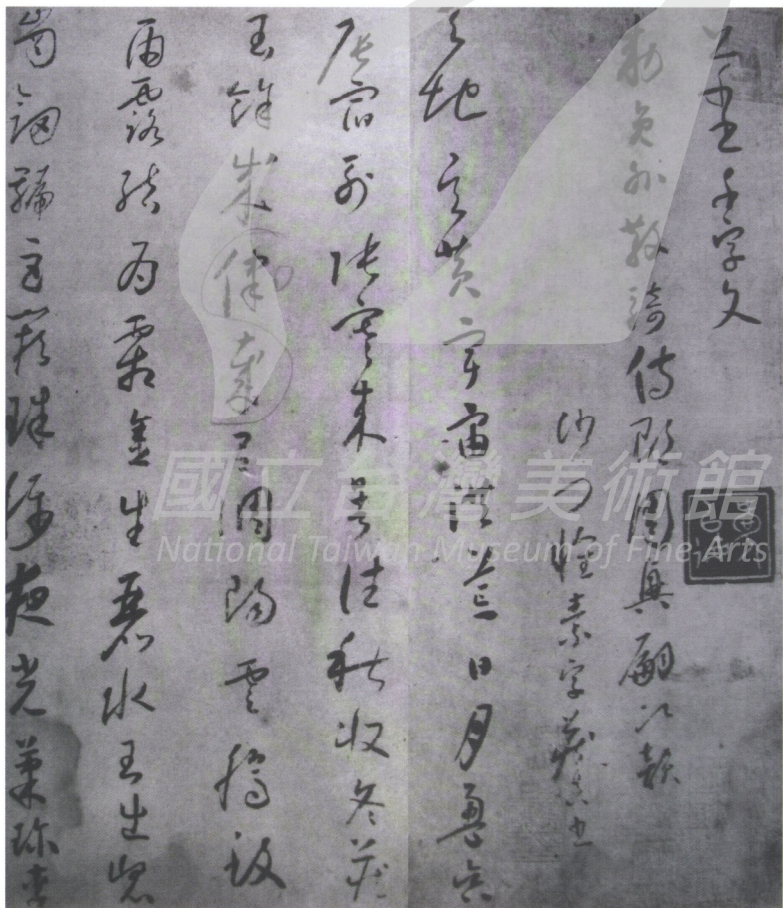 草書千字文
勅員外散騎侍郎周興嗣次韻
沙門懷素字藏真書
天地玄黃宇宙洪荒日月盈昃
辰宿列張寒來暑往秋收冬藏
閏餘成律歲呂調陽雲騰致
雨露結為霜金生麗水玉出崑
崗劍號巨闕珠稱夜光菓珍李
國立台灣美術館
National Taiwan Museum of Fine Arts